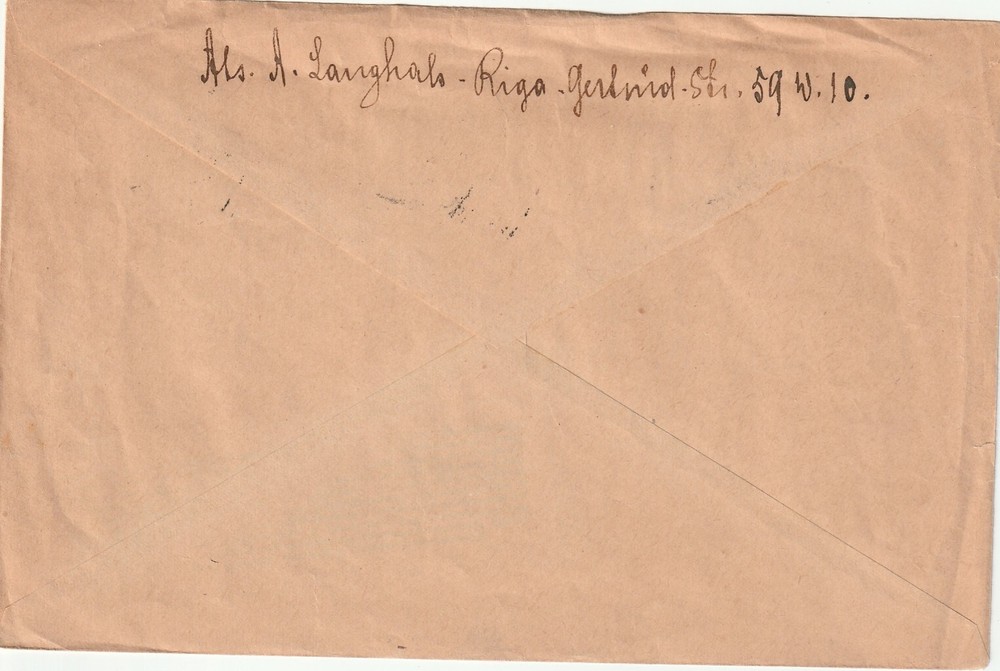 Abs. A. Langhals - Riga - Gertrud-Str. 59 W. 10.